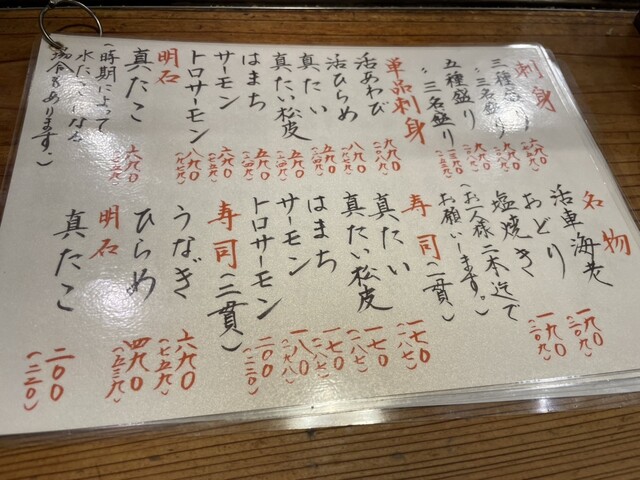 刺身
三種盛り 六九〇
〃 三名盛り 九九〇
五種盛り 九九〇
〃 三名盛り
単品刺身
活あわび 九九〇 (一〇八九)
活ひらめ 八九〇 (九七九)
真たい 五九〇 (六四九)
真たい松皮 五九〇 (六四九)
はまち 五九〇 (六四九)
サーモン 六九〇 (七五九)
トロサーモン 八九〇 (九七九)
明石
真たこ 六九〇 (七五九)
(時期によって
水だこになる
場合もあります。)
名物
活車海老
おどり 一九〇 (二〇九)
塩焼き 一九〇 (二〇九)
(お一人様二本迄で
お願いします。)
寿司(一貫)
真たい 一七〇 (一八七)
真たい松皮 一七〇 (一八七)
はまち 一七〇 (一八七)
サーモン 一八〇 (一九八)
トロサーモン 二〇〇 (二二〇)
寿司(二貫)
うなぎ 六九〇 (七五九)
ひらめ 四九〇 (五三九)
明石
真たこ 二〇〇 (二二〇)